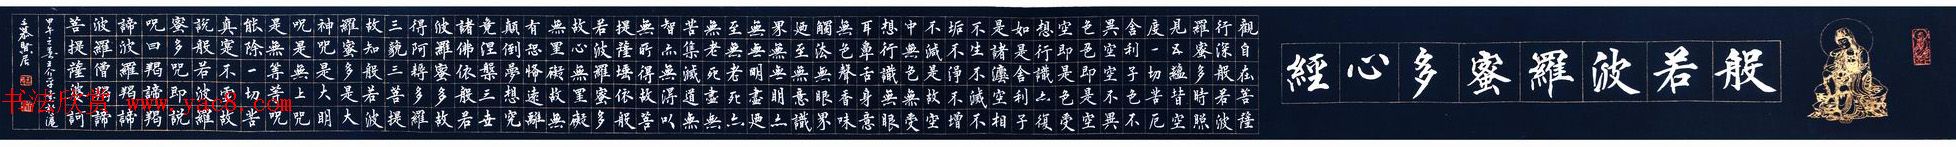 般若波羅蜜多心經
觀自在菩薩
行深般若波
羅蜜多時照
見五蘊皆空
度一切苦厄
舍利子色不
異空空不異
色色即是空
空即是色受
想行識亦復
如是舍利子
是諸灋空相
不生不滅不
垢不淨不增
不減是故空
中無色無受
想行識無眼
耳鼻舌身意
無色聲香味
觸法無眼界
迺至無意識
界無無明亦
無無明盡迺
至無老死亦
無老死盡無
苦集滅道無
智亦無得以
無所得故菩
提薩埵依般
若波羅蜜多
故心無罣礙
無罣礙故無
有恐怖遠離
顛倒夢想究
竟涅槃三世
諸佛依般若
波羅蜜多故
得阿耨多羅
三藐三菩提
故知般若波
羅蜜多是大
神呪是大明
呪是無上呪
是無等等呪
能除一切苦
真實不虛故
說般若波羅
蜜多呪即說
呪曰羯諦羯
諦波羅羯諦
波羅僧羯諦
菩提薩婆訶
甲午之
书法欣赏 www.yac8.com